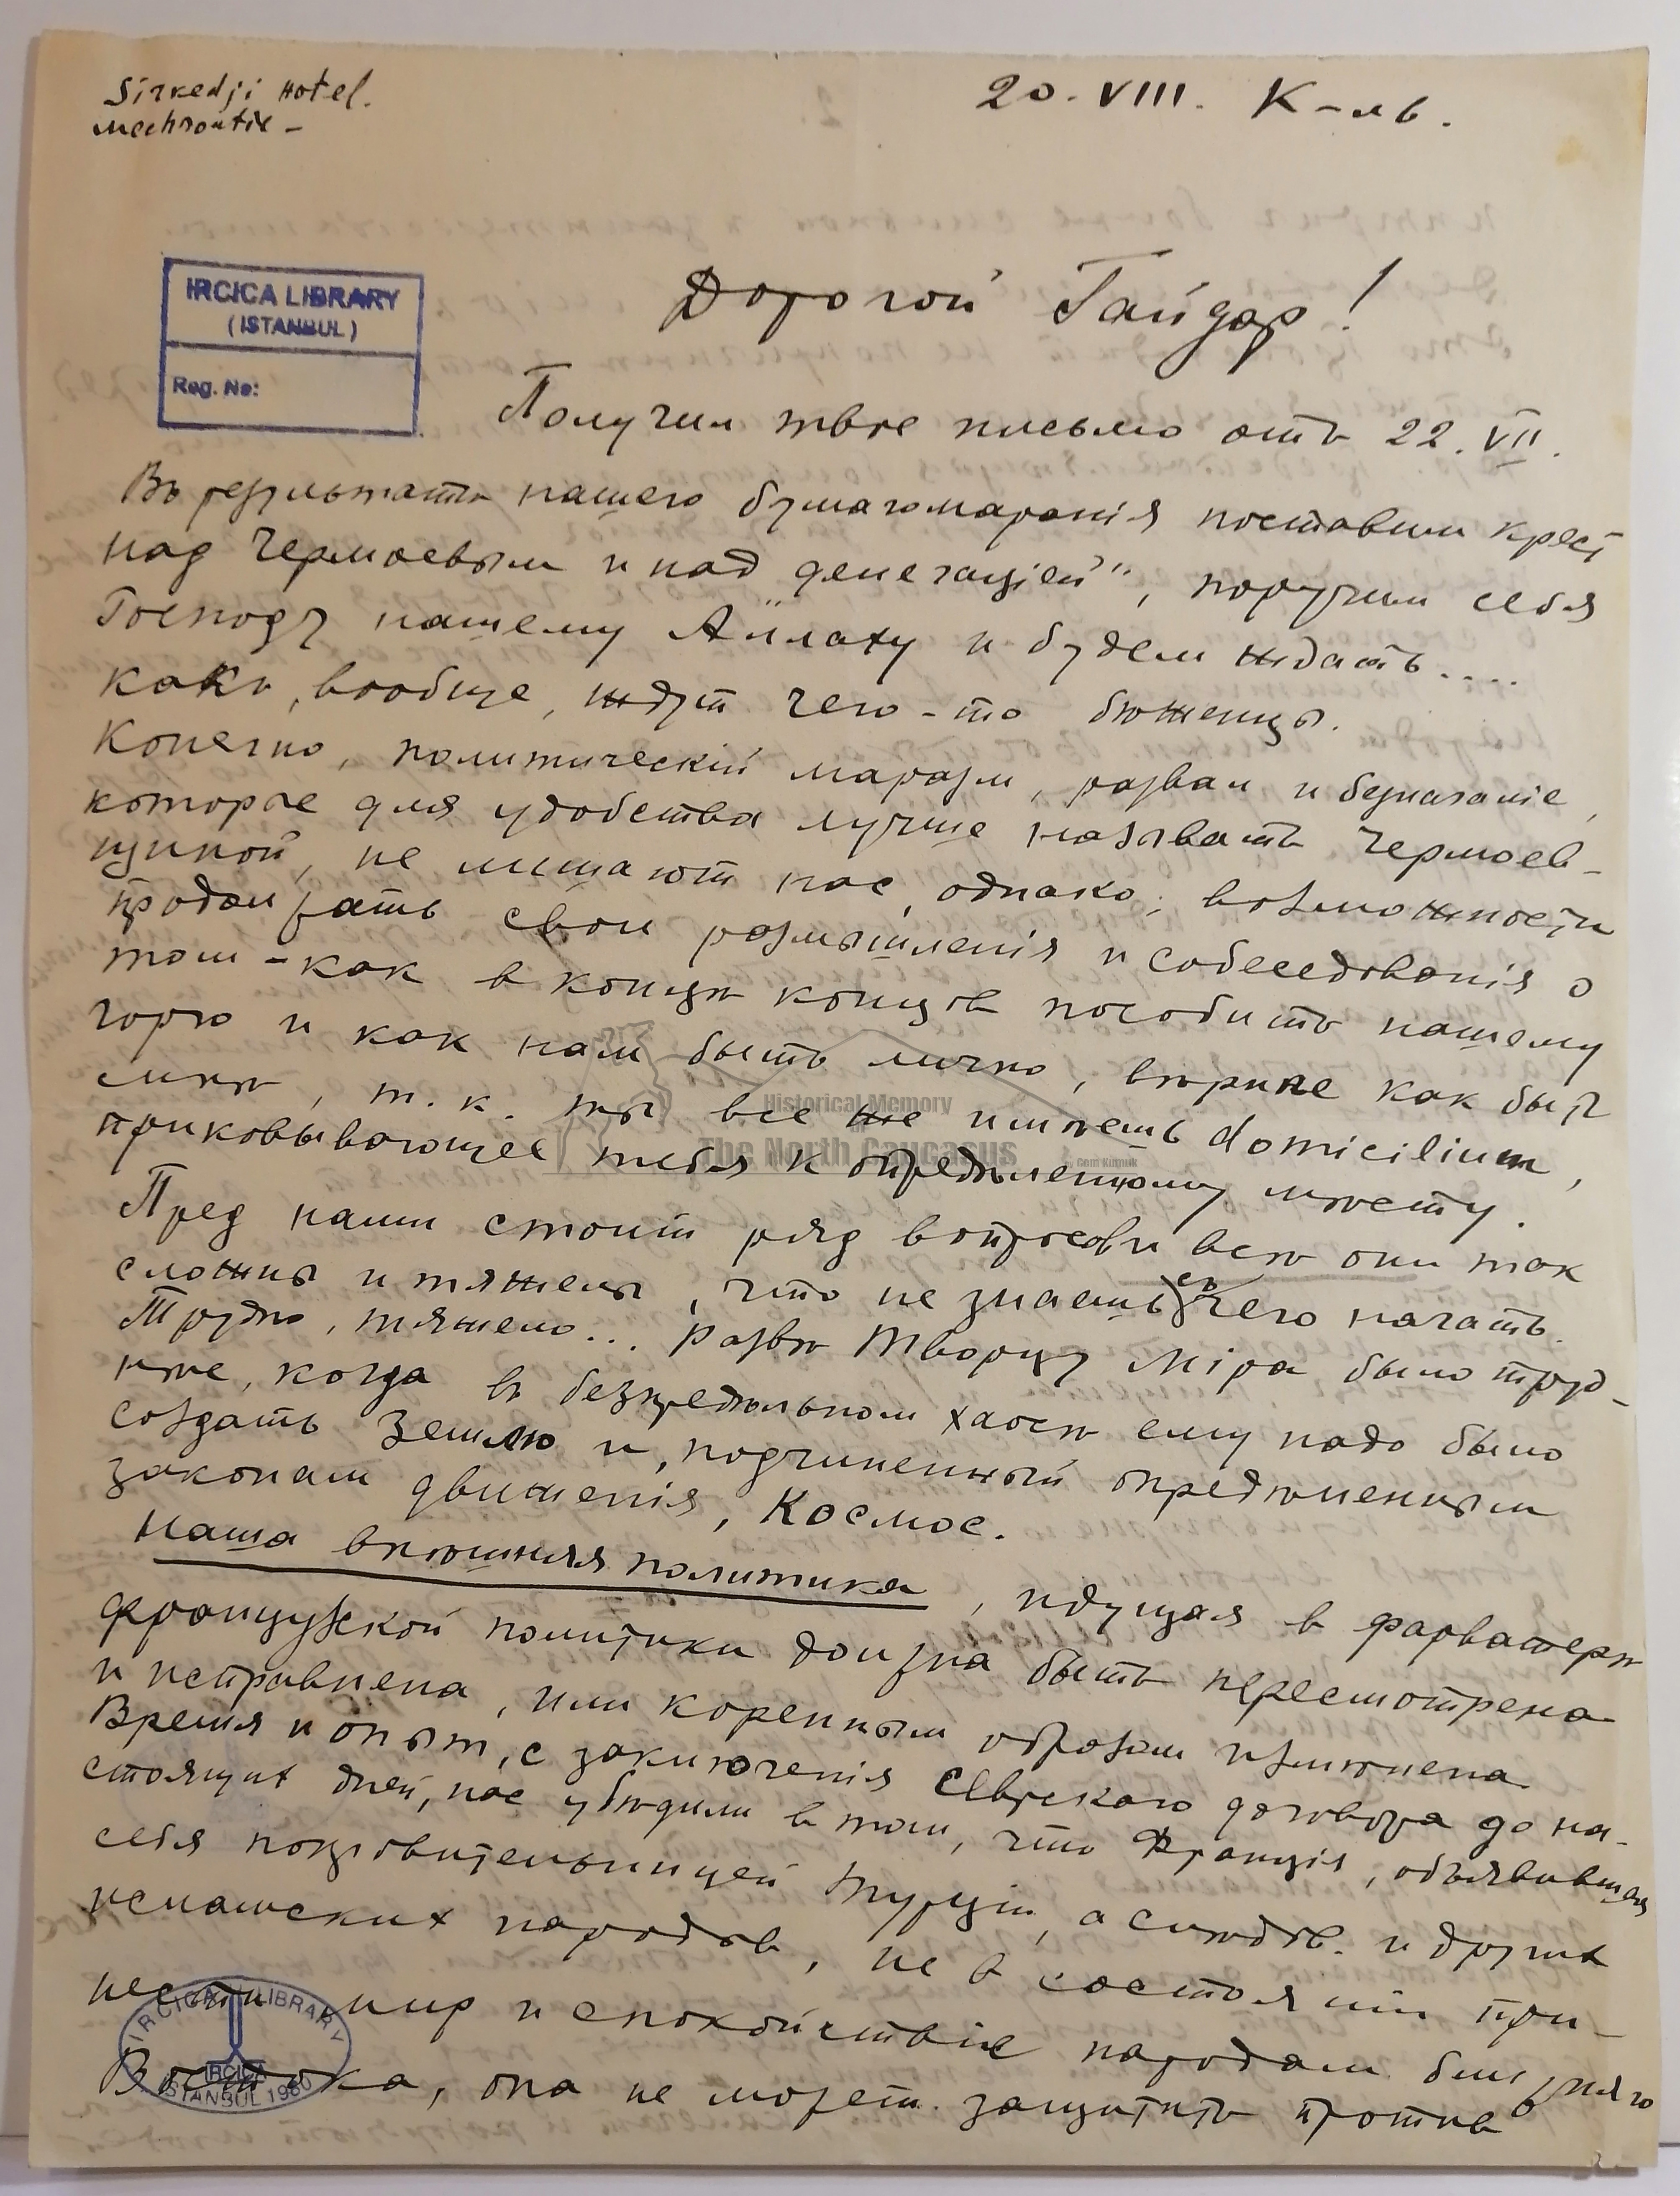 Sirkedji Hotel.
20. VIII. К-ль.
IRCICA LIBRARY
(ISTANBUL)
Reg. No:
Дорогой Гайдар!
Получил твое письмо отъ 22. VII.
Въ результатѣ нашего бумагомаранія поставим крест
над Чермоевым и над „делегаціей", поручим себя
Господу нашему Аллаху и будем ждать....
какъ, вообще, ждут чего-то бѣженцы.
Конечно, политическій маразм, развал и безначаліе,
которое для удобства лучше называть Чермоев-
щиной, не лишают нас, однако, возможности
продолжать свои размышленія и собеседованія о
том - как в концѣ концов пособить нашему
горю и как нам быть лично, вѣрнѣе как быть
мнѣ, т. к. ты все же имѣешь domicilium,
приковывающее тебя к опредѣленному мѣсту.
Пред нами стоит ряд вопросов и всѣ они так
сложны и тяжелы, что не знаешь съ чего начать.
Трудно, тяжело... Развѣ Творцу Міра было труд-
нѣе, когда въ безпредѣльном хаосѣ ему надо было
создать Землю и, подчиненный опредѣленным
законам движенія, Космос.
Наша внѣшняя политика, идущая в фарватерѣ
французской политики должна быть пересмотрена
и исправлена, или коренным образом измѣнена
Время и опыт, с заключенія Севрскаго договора до на-
стоящих дней, нас убѣдили в том, что Франція, объявившая
себя покровительницей Турціи, а слѣдов. и других
исламских народов, не в состояніи при-
нести мир и спокойствіе народам ближняго
Востока, она не может защитить против
Historical Memory
The North Caucasus
IRCICA LIBRARY
IRCICA
ISTANBUL 1980